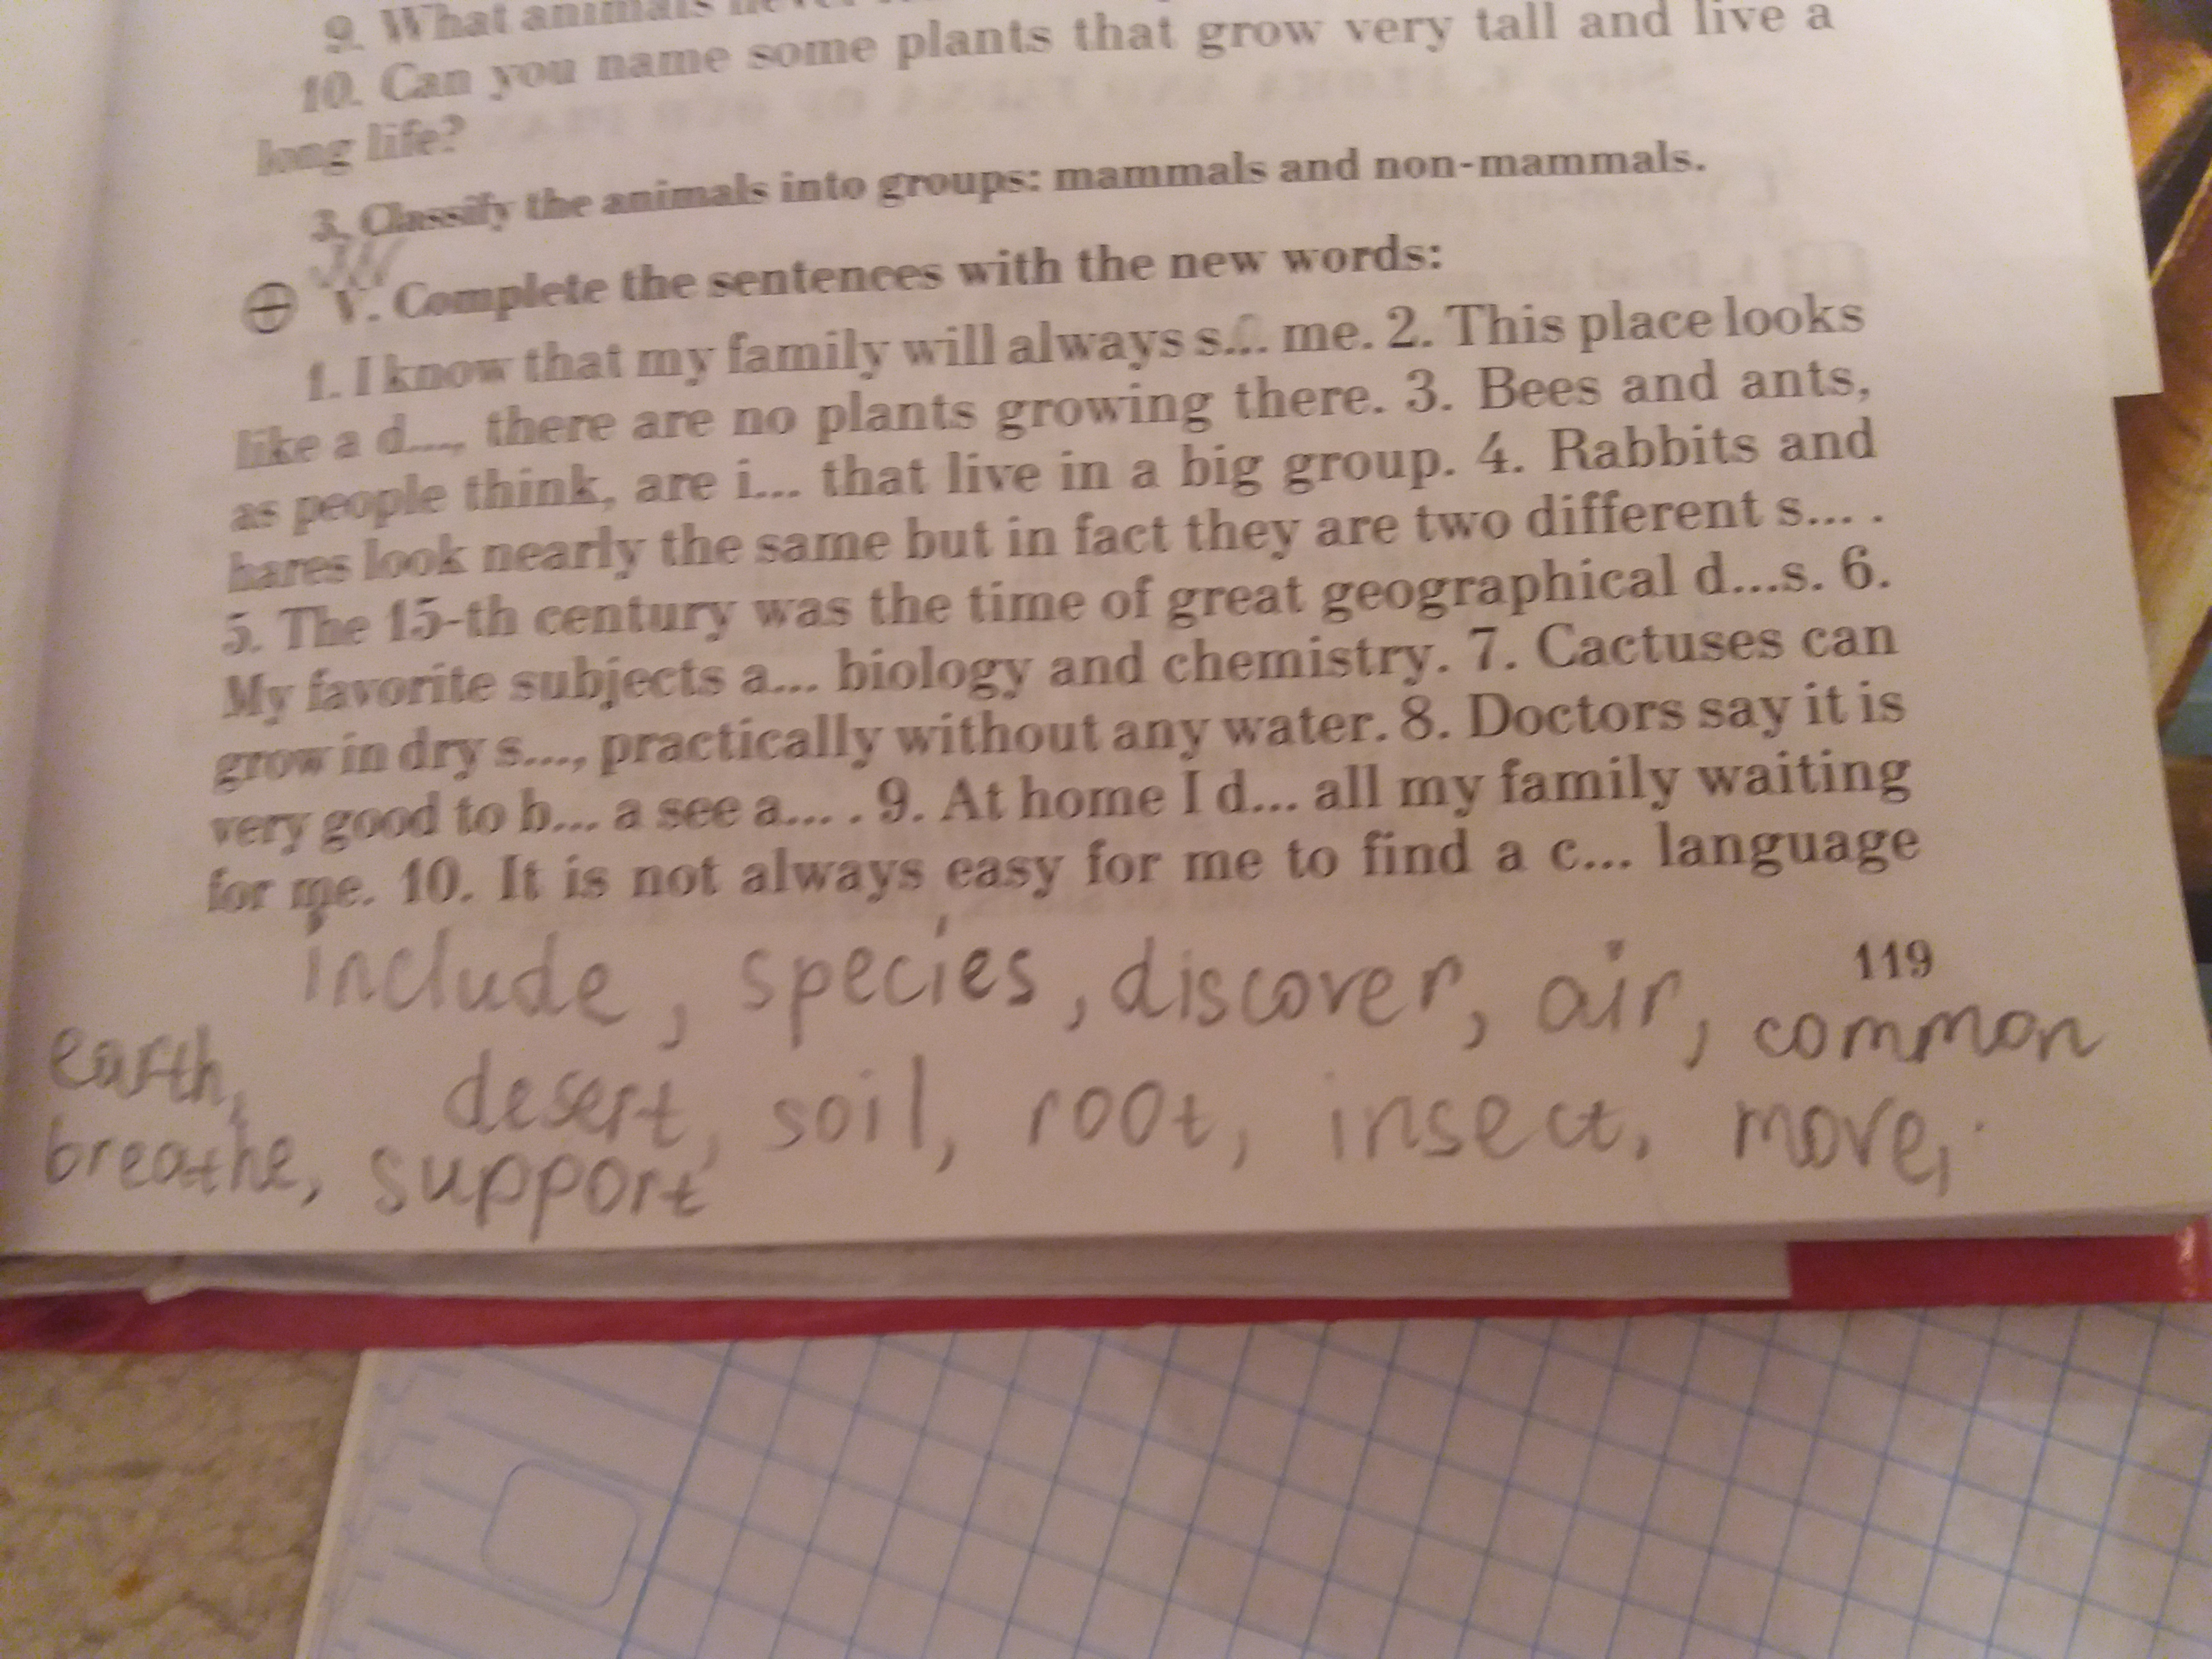 9. What animals
10. Can you name some plants that grow very tall and live a
long life?
3. Classify the animals into groups: mammals and non-mammals.
V. Complete the sentences with the new words:
1. I know that my family will always s... me. 2. This place looks
like a d..., there are no plants growing there. 3. Bees and ants,
as people think, are i... that live in a big group. 4. Rabbits and
hares look nearly the same but in fact they are two different s... .
5. The 15-th century was the time of great geographical d...s. 6.
My favorite subjects a... biology and chemistry. 7. Cactuses can
grow in dry s..., practically without any water. 8. Doctors say it is
very good to b... a see a... . 9. At home I d... all my family waiting
for me. 10. It is not always easy for me to find a c... language
119
include, species, discover, air, common
earth, desert, soil, root, insect, move,
breathe, support